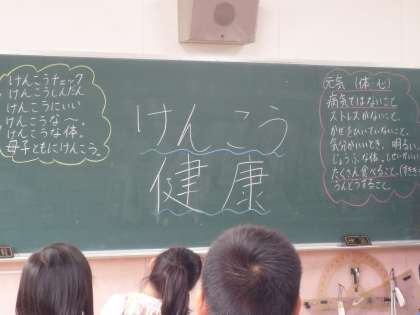 けんこうチェック
けんこうしんだん
けんこうにいい
けんこうな〜。
けんこうな体。
母子ともにけんこう。
けんこう
健康
元気（体・心）
病気ではないこと
ストレスがないこと。
かぜをひいていないこと。
気分がいいとき、明るい。
じょうぶな体。
たくさん食べること。
うんどうすること。